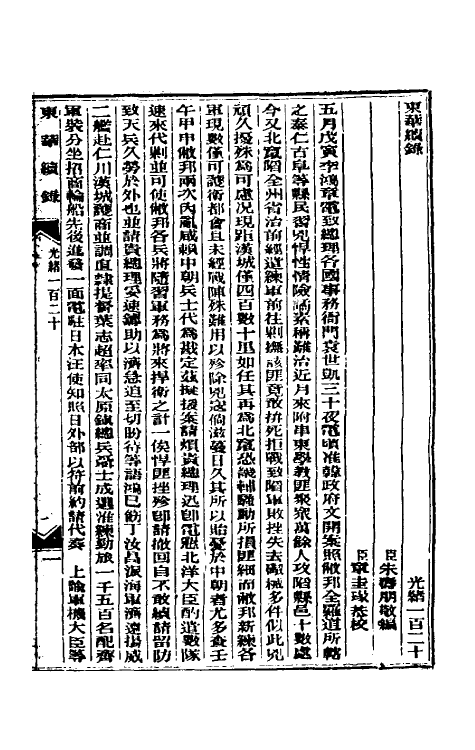 東華續錄
光緒一百二十
臣朱壽朋敬編
臣章圭瑑恭校
五月戊寅李鴻章電致總理各國事務衙門袁世凱三十夜電頃准韓政府文開案照敝邦全羅道所轄
之泰仁古阜等縣民習兇悍性情險譎素稱難治近月來附串東學教匪聚衆萬餘人攻陷縣邑十數處
今又北竄陷全州省治前經遣練軍前往剿撫該匪竟敢拚死拒戰致陷軍敗挫失去礮械多件似此兇
頑久擾殊爲可慮況現距漢城僅四百數十里如任其再爲北竄恐畿輔騷動所損匪細而敝邦新練各
軍現數僅可護衛都會且未經戰陣殊難用以殄除兇寇倘滋蔓日久其所以貽憂於中朝者尤多查壬
午甲申敝邦兩次內亂咸賴中朝兵士代爲戡定茲擬援案請煩貴總理迅卽電懇北洋大臣酌遣數隊
速來代剿並可使敝邦各兵將隨習軍務爲將來捍衛之計一俟悍匪挫殄卽請撤回自不敢續請留防
致天兵久勞於外也並請貴總理妥速籌助以濟急迫至切盼待等語鴻已飭丁汝昌派海軍濟遠揚威
二艦赴仁川漢城護商並調直隸提督葉志超率同太原鎮總兵聶士成選准練勁旅一千五百名配齊
軍裝分坐招商輪船先後進發一面電駐日本汪使知照日外部以符前約請代奏 上諭軍機大臣等
東華續錄
光緒一百二十
一